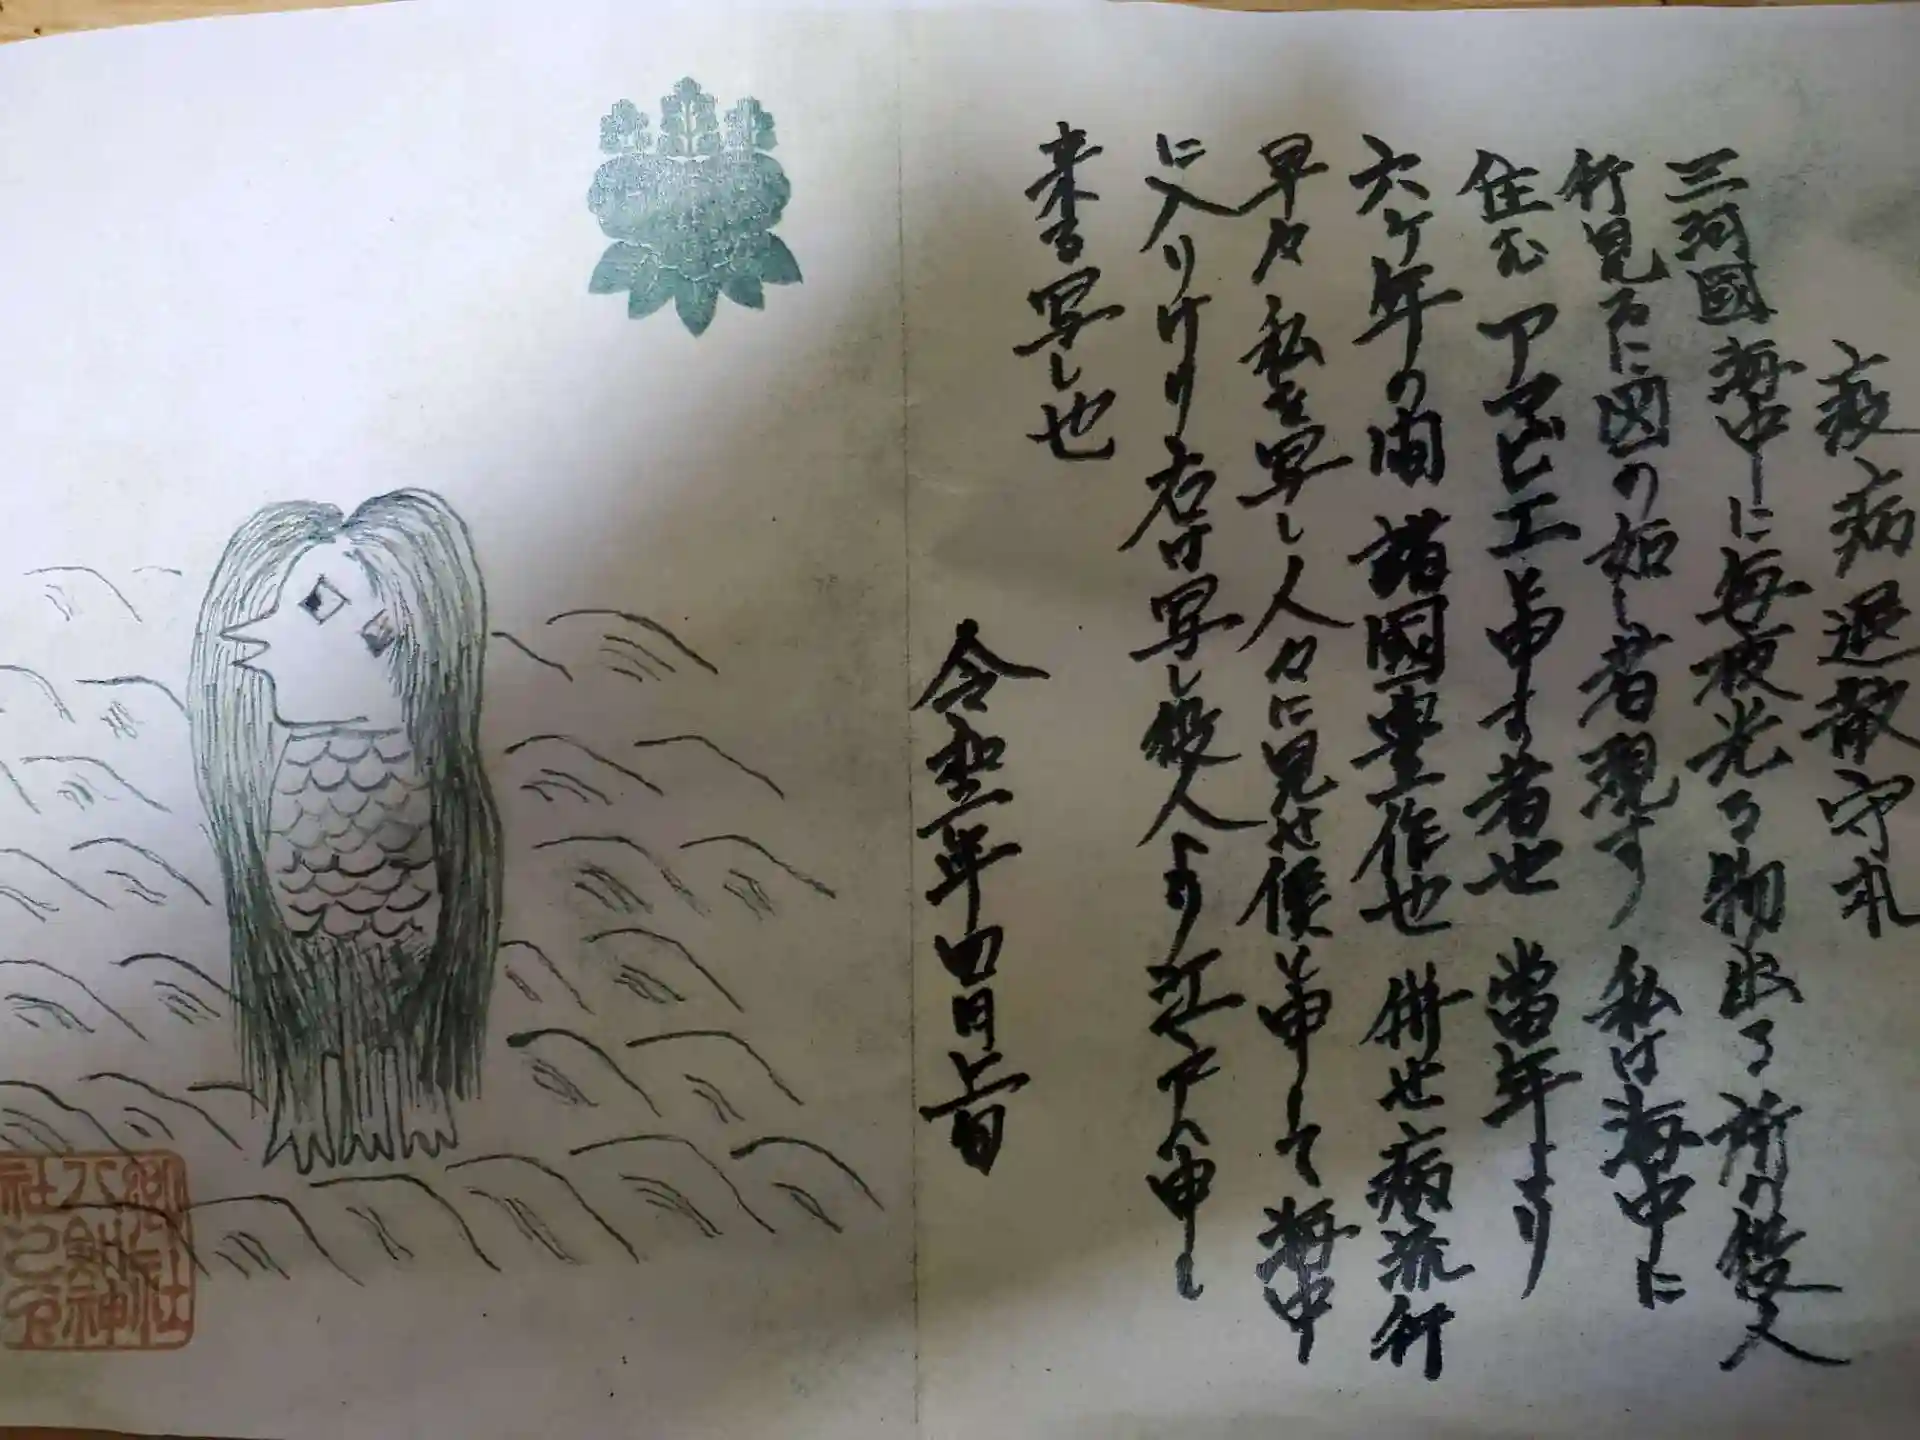 疫病退散守札
三河國海中に毎夜光る物出る所の役人
行見るに図の如し者現す 私は海中に
住むアマビエと申す者也 當年より
六ケ年の間諸國豊作也 併せ病流行
早々私を写し人々に見せ候と申して海中
に入りけり 右は写し役人より江戸へ申し
来る写し也
令和二年四月上旬
郷社
八剣神
社之印